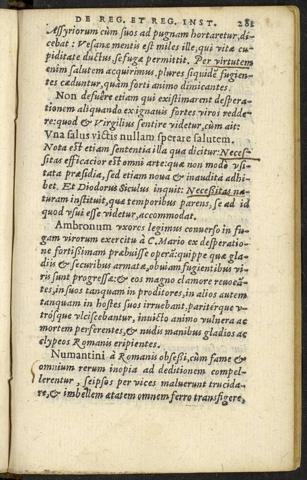 DE REG. ET REG. INST. 281
Assyriorum cùm suos ad pugnam hortaretur, di-
cebat: Vesanæ mentis est miles ille, qui vitæ cu-
piditate ductus se fuga permittit. Per virtutem
enim salutem acquirimus, plures siquidẽ fugien-
tes cæduntur, quàm forti animo dimicantes.
Non defuêre etiam qui existimarent despera-
tionem aliquando ex ignauis fortes viros redde-
re: quod & Virgilius sentire videtur, cùm ait:
Vna salus victis nullam sperare salutem.
Nota est etiam sententia illa qua dicitur: Neces-
sitas efficacior est omni arte: quæ non modò vsi-
tata præsidia, sed etiam noua & inaudita adhi-
bet. Et Diodorus Siculus inquit: Necessitas na-
turam instituit, quæ temporibus parens, se ad id
quod vsui esse videtur, accommodat.
Ambronum vxores legimus conuerso in fu-
gam virorum exercitu à C. Mario ex desperatio-
ne fortissimam præbuisse operã: quippe quæ gla-
diis & securibus armatæ, obuiam fugientibus vi-
ris sunt progressæ: & eos magno clamore reuocã-
tes, in suos tanquam in proditores, in alios autem
tanquam in hostes suos irruebant. pariterque v-
trósque vlciscebantur, inuicto animo vulnera ac
mortem perferentes, & nudis manibus gladios ac
clypeos Romanis eripientes.
Numantini à Romanis obsessi, cùm fame &
omnium rerum inopia ad deditionem compel-
lerentur, seipsos per vices maluerunt trucida-
re, & imbellem ætatem omnem ferro transfigere,